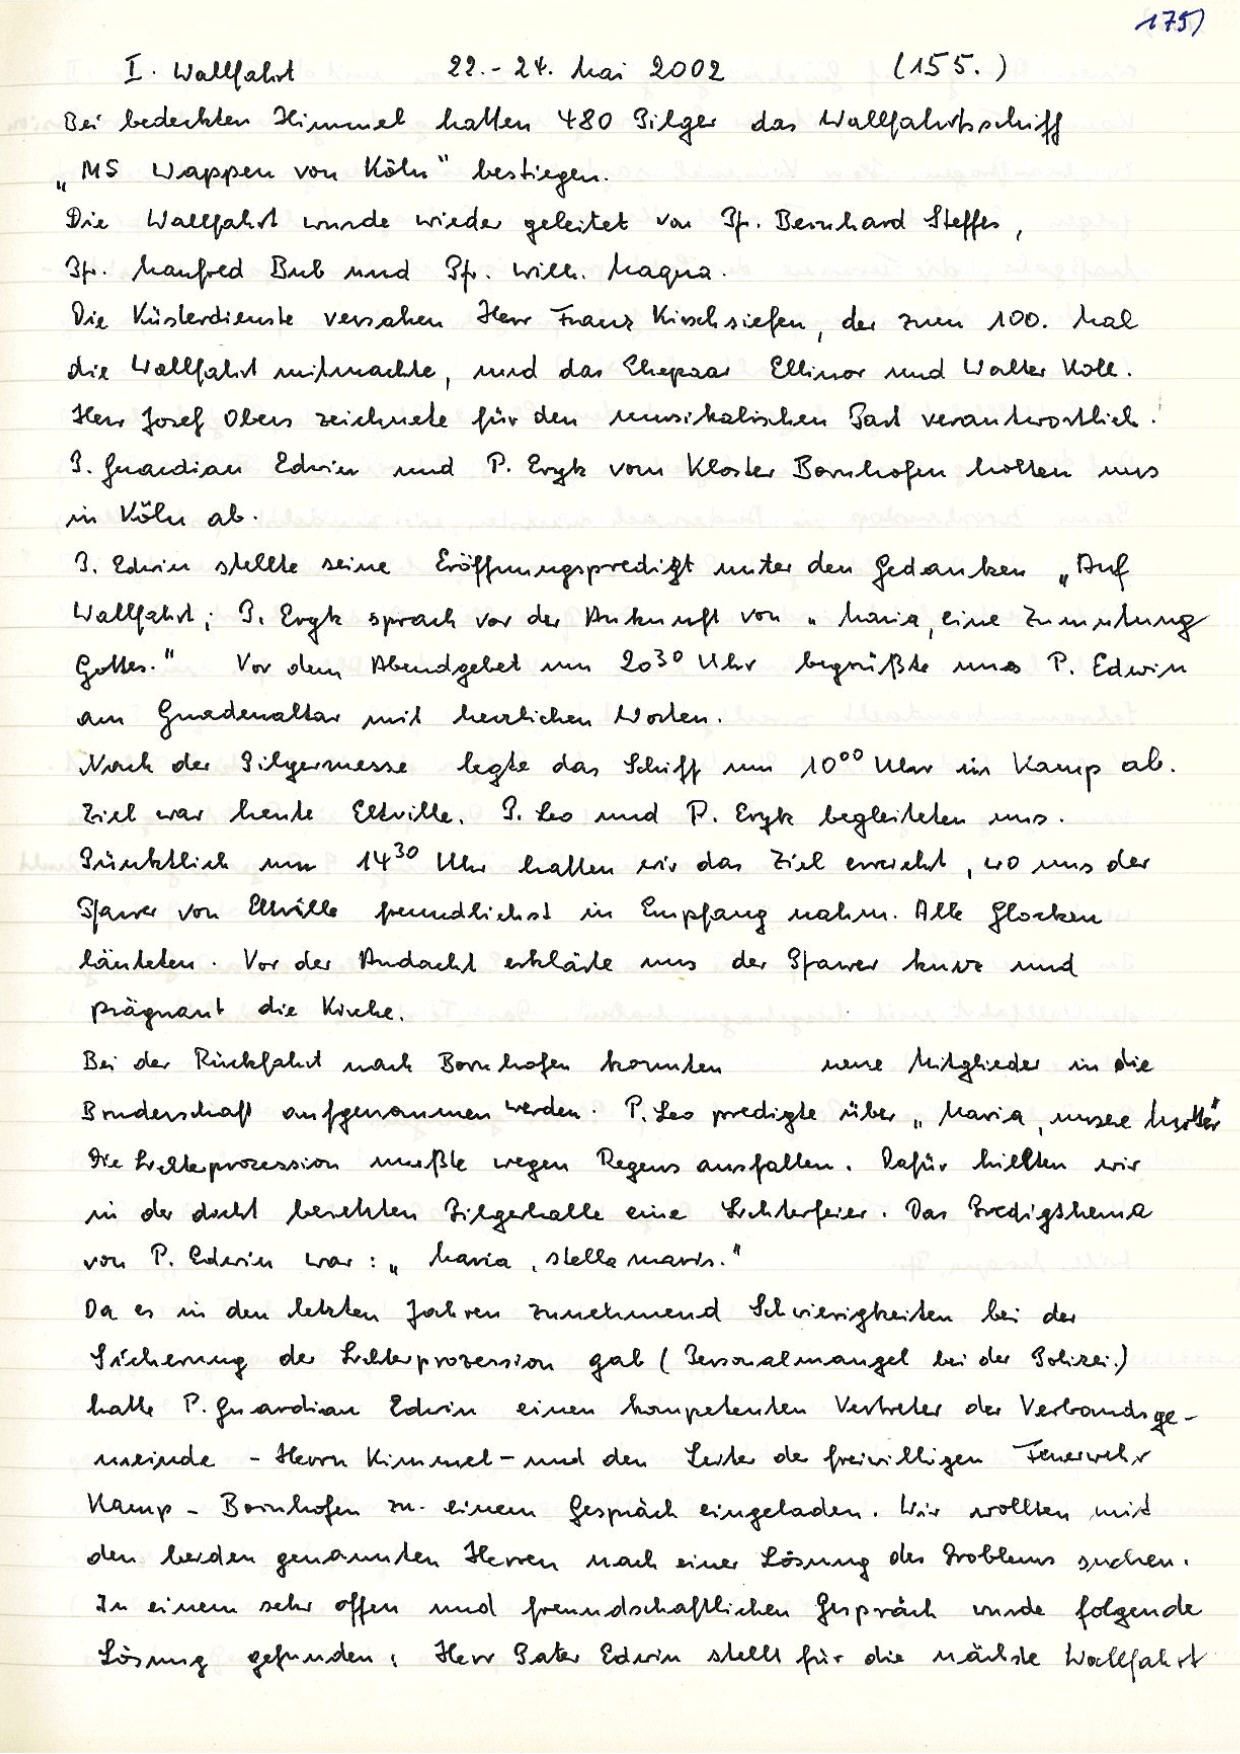 175)
I. Wallfahrt 22.-24. Mai 2002 (155.)
Bei bedeckten Himmel hatten 480 Pilger das Wallfahrtsschiff
„MS Wappen von Köln" bestiegen.
Die Wallfahrt wurde wieder geleitet von Pfr. Bernhard Steffes,
Pfr. Manfred Bub und Pfr. Willi. Magua.
Die Küsterdienste versahen Herr Franz Kirschsiefen, der zum 100. Mal
die Wallfahrt mitmachte, und das Ehepaar Ellinor und Walter Koll.
Herr Josef Obers zeichnete für den musikalischen Part verantwortlich.
P. Guardian Edwin und P. Eryk vom Kloster Bornhofen holten uns
in Köln ab.
P. Edwin stellte seine Eröffnungspredigt unter den Gedanken „Auf
Wallfahrt; P. Eryk sprach vor der Ankunft von „Maria, eine Zumutung
Gottes." Vor dem Abendgebet um 20 30 Uhr begrüßte uns P. Edwin
am Gnadenaltar mit herzlichen Worten.
Nach der Pilgermesse legte das Schiff um 10 00 Uhr in Kamp ab.
Ziel war heute Eltville. P. Leo und P. Eryk begleiteten uns.
Pünktlich um 14 30 Uhr hatten wir das Ziel erreicht, wo uns der
Pfarrer von Eltville freundlichst in Empfang nahm. Alle Glocken
läuteten. Vor der Andacht erklärte uns der Pfarrer kurz und
prägnant die Kirche.
Bei der Rückfahrt nach Bornhofen konnten neue Mitglieder in die
Bruderschaft aufgenommen werden. P. Leo predigte über „Maria, unsere Mutter"
Die Lichterprozession mußte wegen Regens ausfallen. Dafür hielten wir
in der dicht besetzten Pilgerhalle eine Lichterfeier. Das Predigtthema
von P. Edwin war: „Maria, stella maris."
Da es in den letzten Jahren zunehmend Schwierigkeiten bei der
Sicherung der Lichterprozession gab (Personalmangel bei der Polizei.)
hatte P. Guardian Edwin einen kompetenten Vertreter der Verbandsge-
meinde - Herrn Kimmel - und den Leiter der freiwilligen Feuerwehr
Kamp - Bornhofen zu einem Gespräch eingeladen. Wir wollten mit
den beiden genannten Herren nach einer Lösung des Problems suchen.
In einem sehr offen und freundschaftlichen Gespräch wurde folgende
Lösung gefunden: Herr Pater Edwin stellt für die nächste Wallfahrt